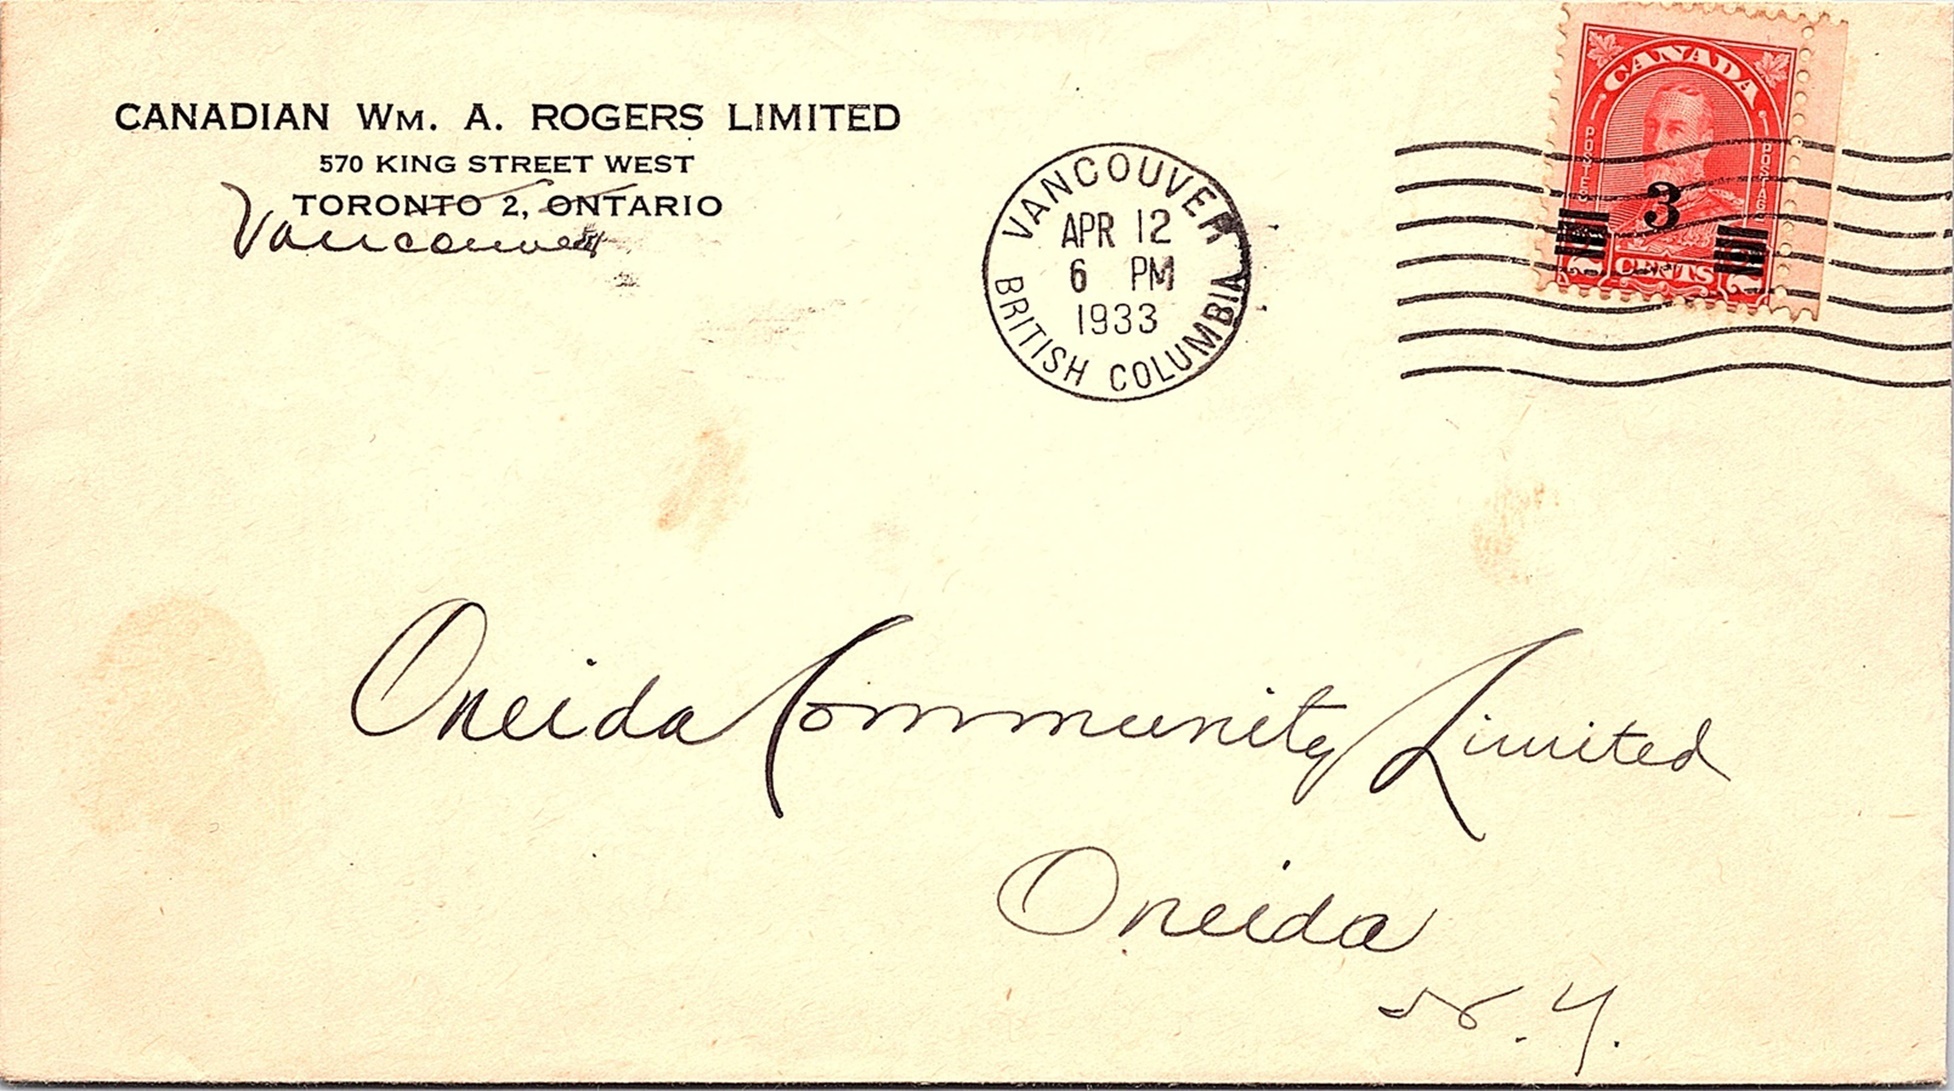 CANADIAN WM. A. ROGERS LIMITED
570 KING STREET WEST
TORONTO 2, ONTARIO
Vancouver
VANCOUVER
APR 12
6 PM
1933
BRITISH COLUMBIA
CANADA
POSTES POSTAGE
3
2 CENTS 2
Oneida Community Limited
Oneida
N.Y.